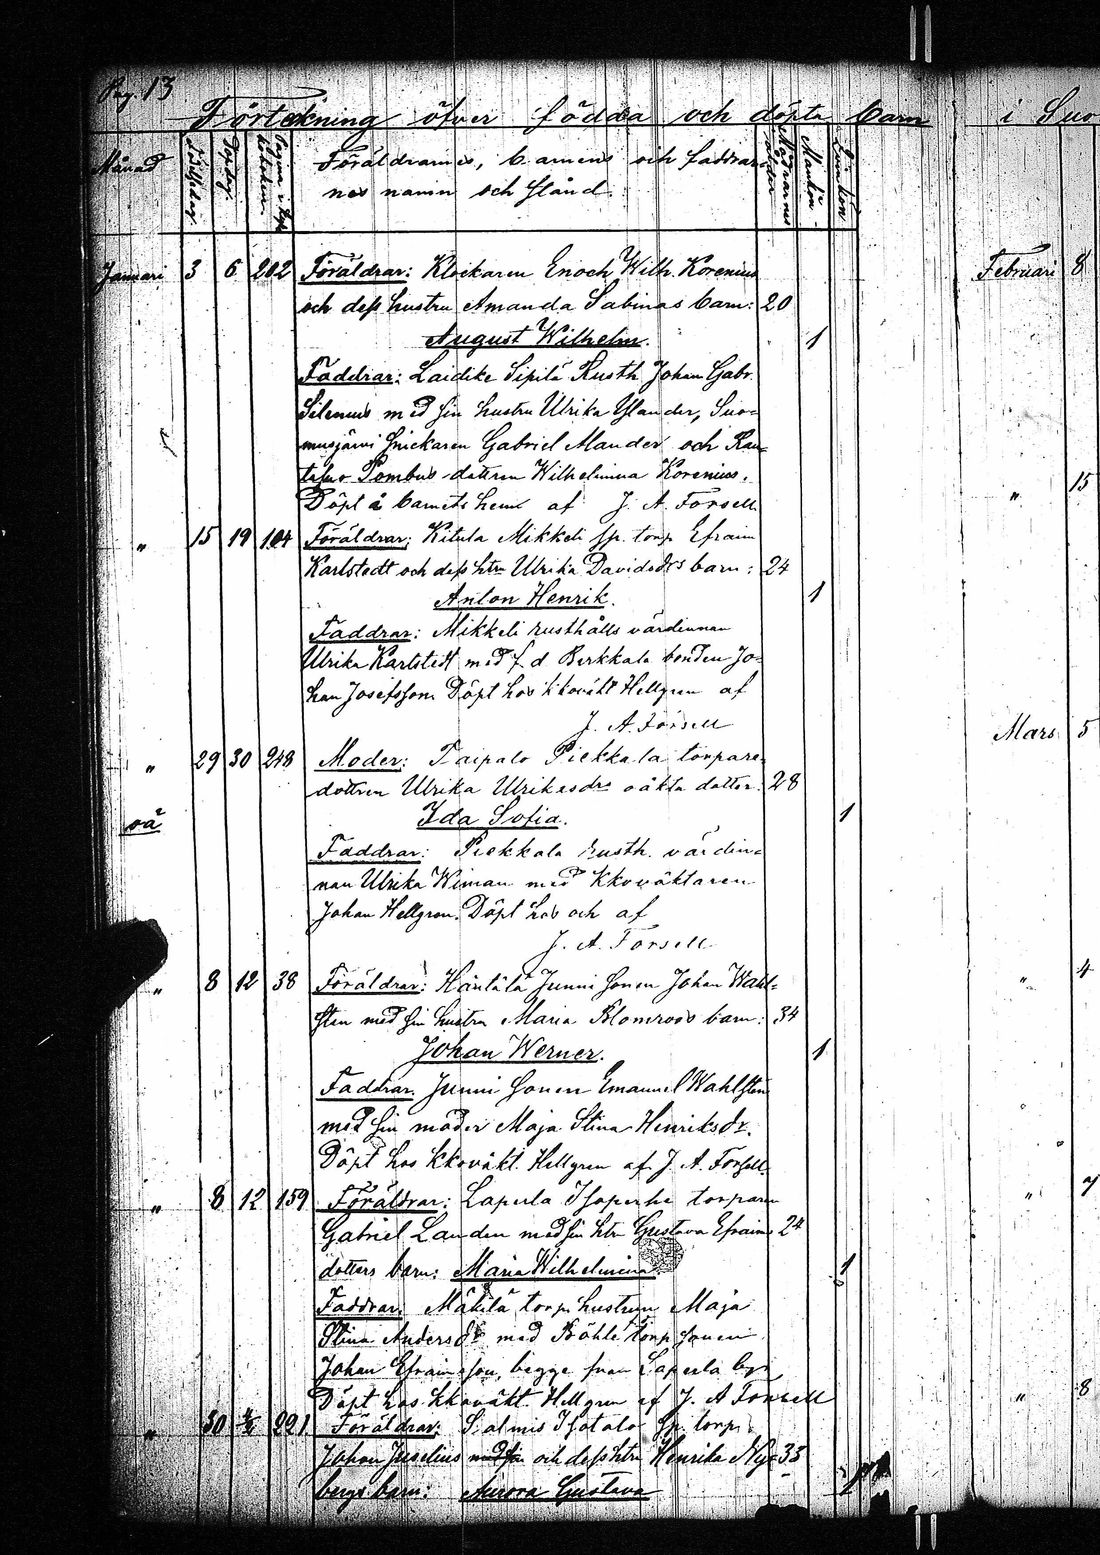 Pag. 13
Förteckning öfver födda och döpta barn
i Suo
Månad
Födelsedag.
Döpdag.
Föräldrarnes, barnens och faddrar-
nes namn och stånd
Mödrarnes ålder
Mankön
Qvinkön
Januari 3 6 202 Föräldrar: Klockaren Enoch Wilh. Korenius
och dess hustru Amanda Sabinas barn: 20
August Wilhelm. 1
Faddrar: Laidike Sipilä Rusth Johan Gabr.
Silenius med sin hustru Ulrika Ylander, Suo-
musjärvi snickaren Gabriel Mander och
Pombus dottren Wilhelmina Korenius.
Döpt å barnets hem af J. A. Forsell
" 15 19 104 Föräldrar: Kitula Mikkeli torp Efraim
Karlstedt och dess htru Ulrika Davidsdrs barn: 24
Anton Henrik. 1
Faddrar: Mikkeli rusthålls värdinnan
Ulrika Karlstedt med f d Berkkala bonden Jo-
han Josefsson Döpt hos kkoväkt Hellgren af
J. A. Forsell
" 29 30 248 Moder: Taipalo Piekkala torpare
dottren Ulrika Ulrikasdrs oäkta dotter: 28
oä Ida Sofia. 1
Faddrar: Piekkala rusth. värdin-
nan Ulrika Wiman med Kkoväktaren
Johan Hellgren. Döpt hos och af
J. A. Forsell
" 8 12 38 Föräldrar: Häntälä Junni sonen Johan Wahl-
sten med sin hustru Maria Blomroos barn: 34
Johan Werner. 1
Faddrar. Junni sonen Emanuel Wahlsten
med sin moder Maja Stina Henriksdr.
Döpt hos kkoväkt. Hellgren af J. A. Forsell.
" 8 12 159 Föräldrar: Laperla Isoperhe torparen
Gabriel Landen med sin htru Gustava Efraims 24
dotters barn: Maria Wilhelmina. 1
Faddrar. Mäkilä torp. hustrun Maja
Stina Andersdr med torp sonen
Johan Efraimsson, begge från Laperla by.
Döpt hos kkoväkt. Hellgren af J. A Forsell
" 30 221 Föräldrar: Salmis Isotalo torp.
Johan Juselius och dess htru Henrika Ny- 33
bergs barn: Aurora Gustava 1
Februari 8
" 15
Mars 5
" 4
" 7
" 8